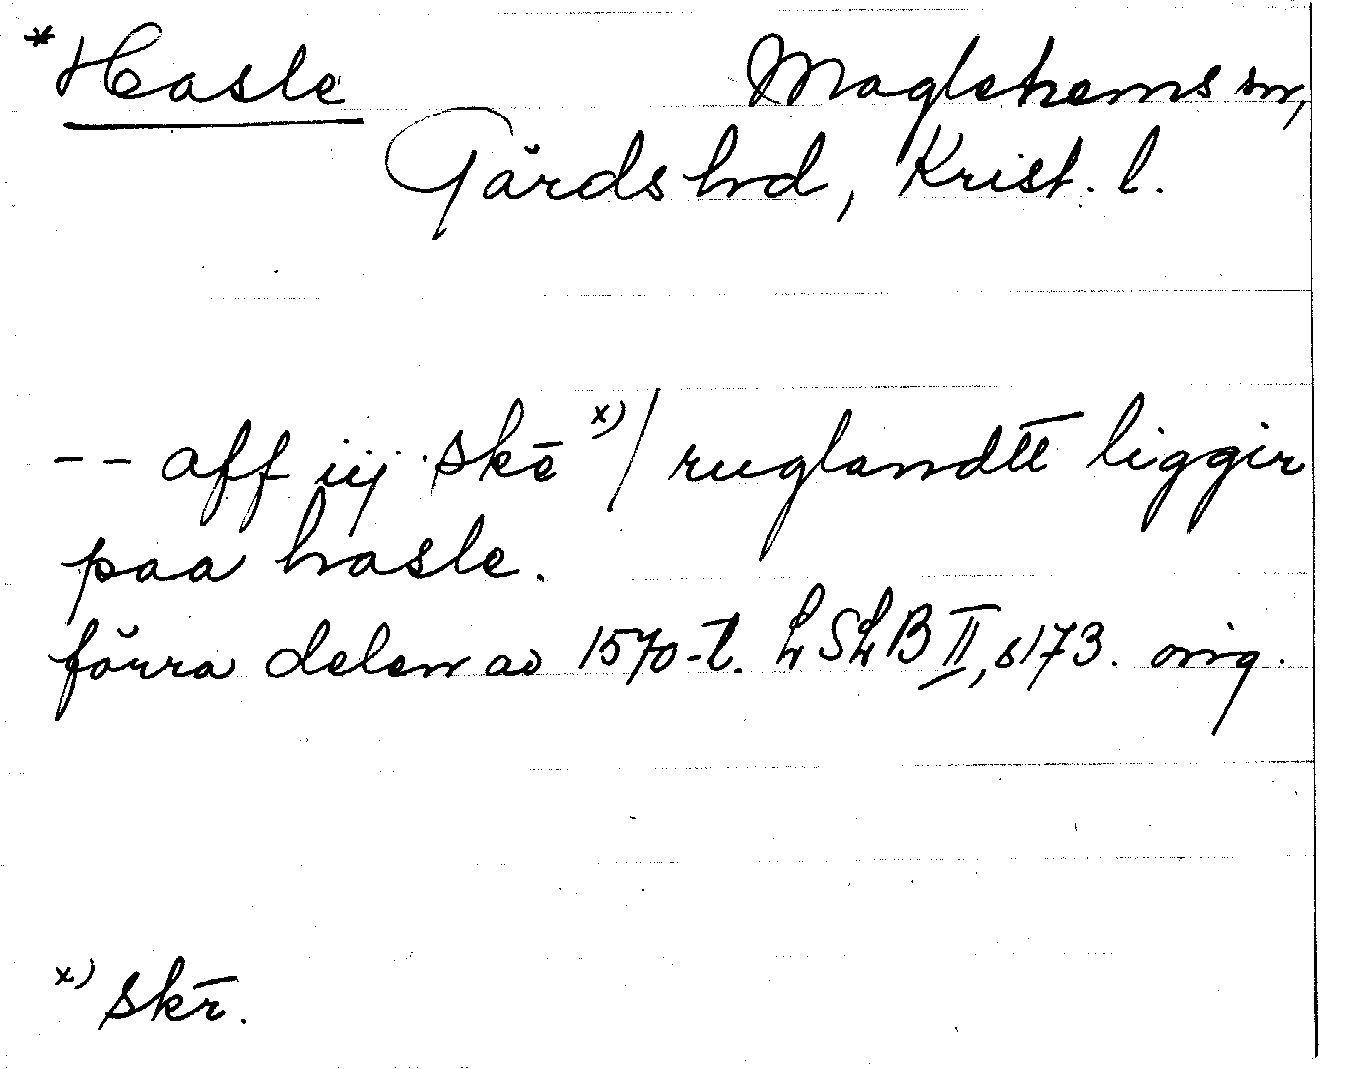 *Hasle Maglehems sn,
Gärds hd, Krist. l.
-- aff iij skē x)/ ruglandtt liggir
paa hasle.
förra delen av 1570-t. LSLB II, s 173. orig.
x) skr̄.